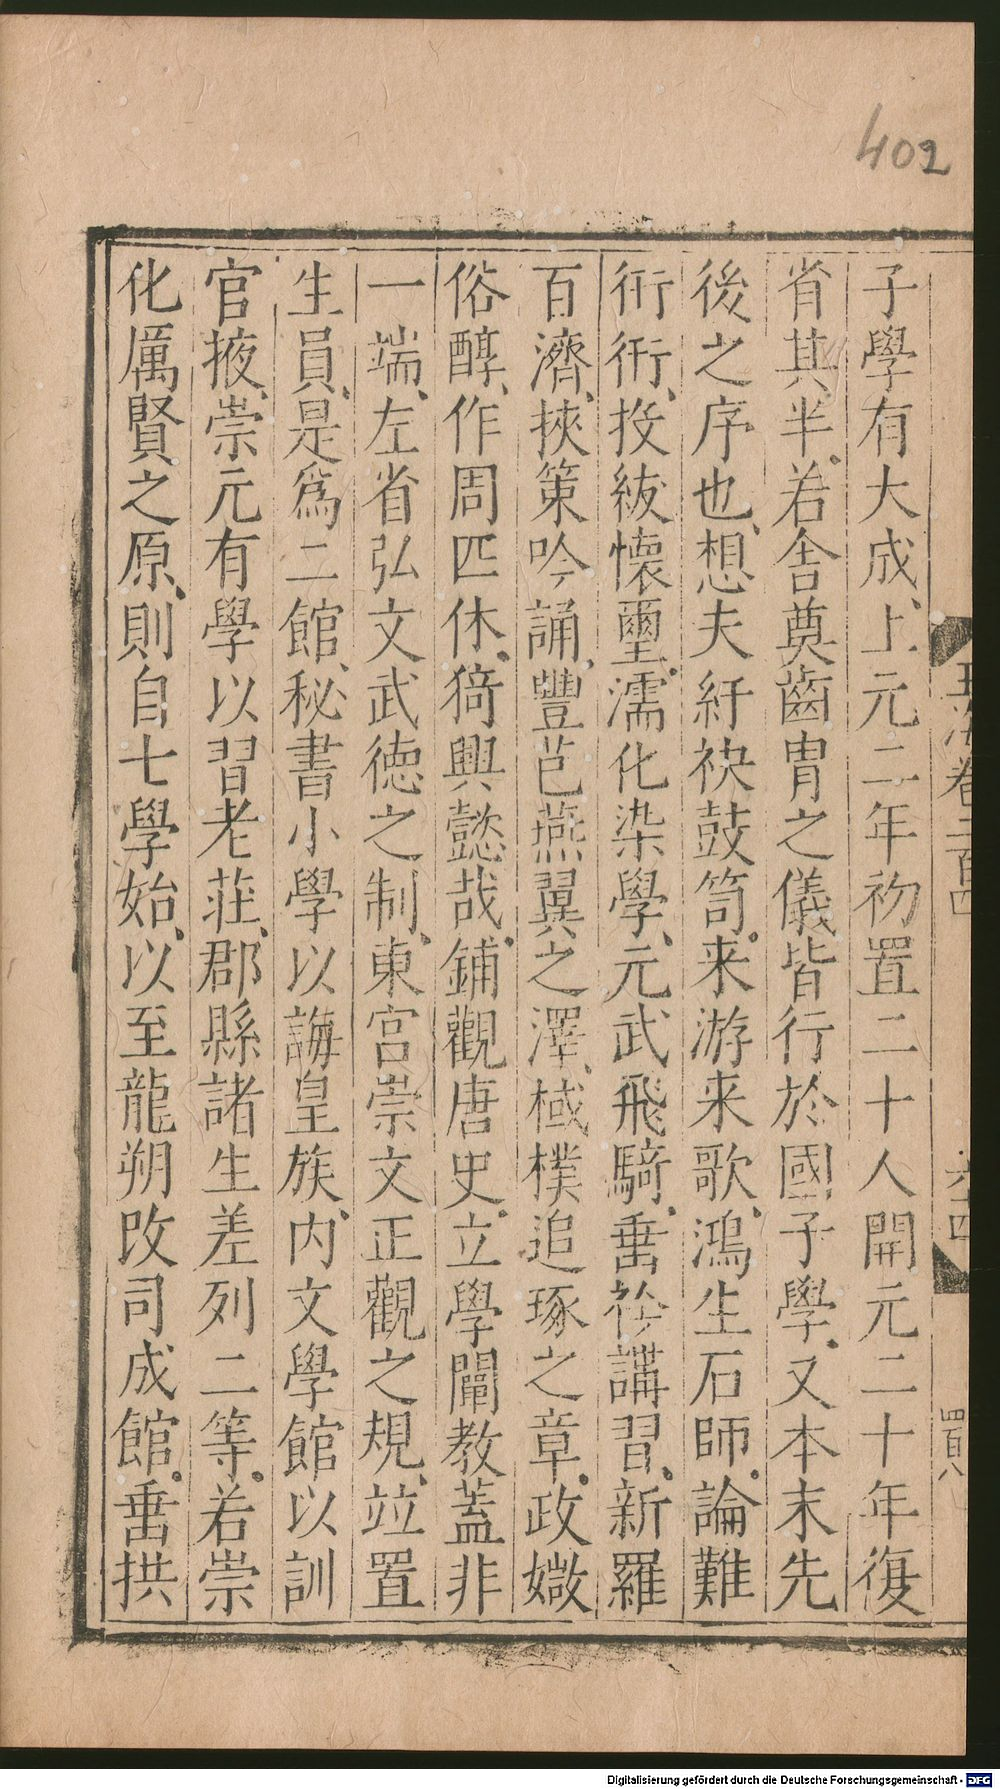 402
子學有大成、上元二年初置二十人開元二十年復
省其半。若舍奠齒胄之儀皆行於國子學、又本末先
後之序也、想夫紆袂鼓笥。来游来歌、鴻生石師。論難
衎衎、投紱懷璽。濡化染學、元武飛騎、垂衿講習、新羅
百濟、挾策吟誦、豐芑燕翼之澤、棫樸追琢之章。政媺
俗醇、作周匹休、猗與懿哉。鋪觀唐史。立學闡教蓋非
一端、左省弘文武德之制、東宮崇文正觀之規、竝置
生員、是爲二館、秘書小學以誨皇族、内文學館以訓
官掖、崇元有學以習老莊、郡縣諸生差列二等。若崇
化厲賢之原、則自七學始、以至龍朔改司成館。垂拱
玉海卷二百四
六十四
四百八
Digitalisierung gefördert durch die Deutsche Forschungsgemeinschaft - DFG